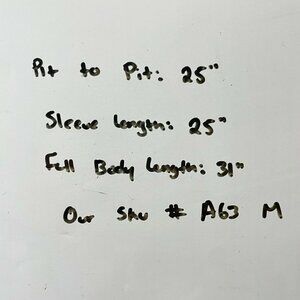 Pit to Pit: 25"
Sleeve Length: 25"
Full Body Length: 31"
Our Sku # A63 M